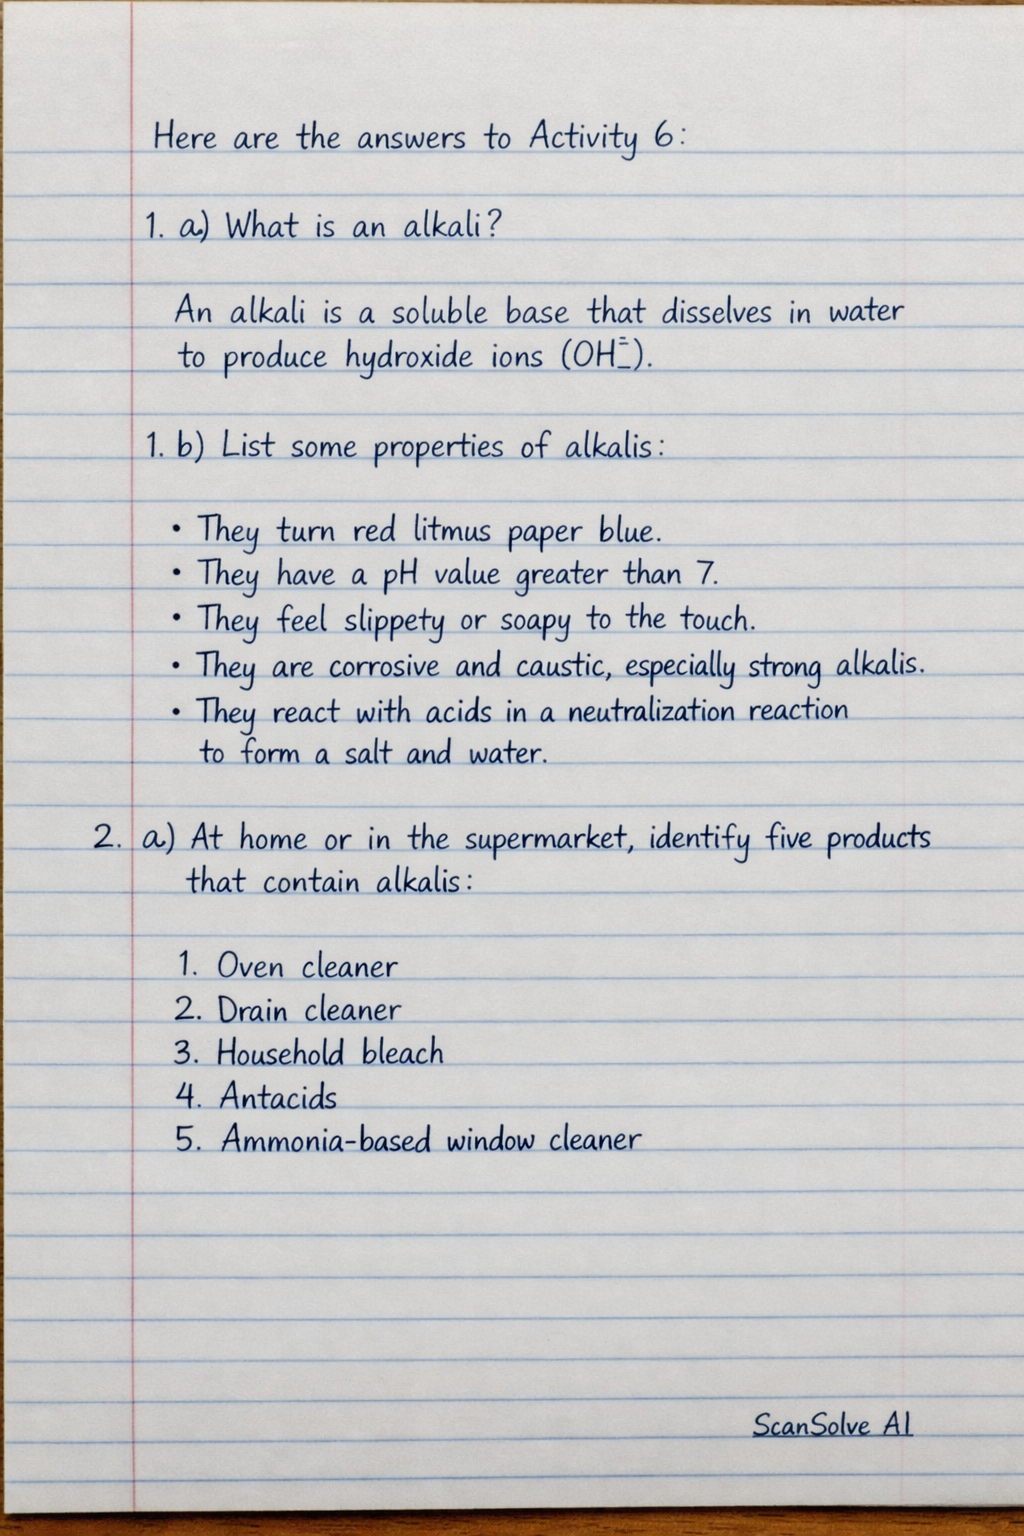 Here are the answers to Activity 6:
1. a) What is an alkali?
An alkali is a soluble base that disselves in water
to produce hydroxide ions (OH⁻).
1. b) List some properties of alkalis:
• They turn red litmus paper blue.
• They have a pH value greater than 7.
• They feel slippety or soapy to the touch.
• They are corrosive and caustic, especially strong alkalis.
• They react with acids in a neutralization reaction
to form a salt and water.
2. a) At home or in the supermarket, identify five products
that contain alkalis:
1. Oven cleaner
2. Drain cleaner
3. Household bleach
4. Antacids
5. Ammonia-based window cleaner
ScanSolve AI